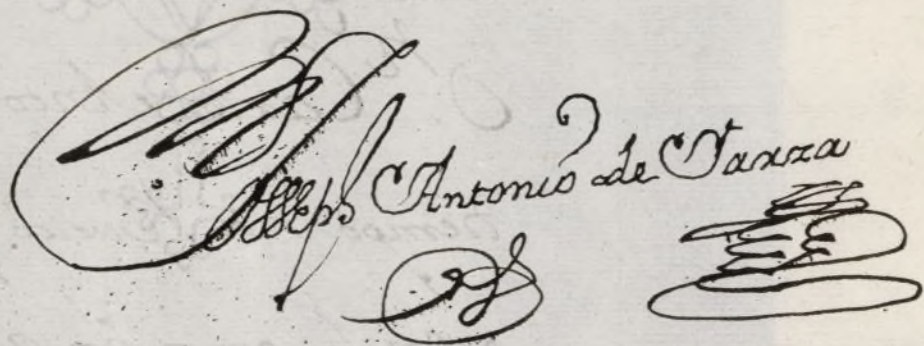 Joseph Antonio de Yarza